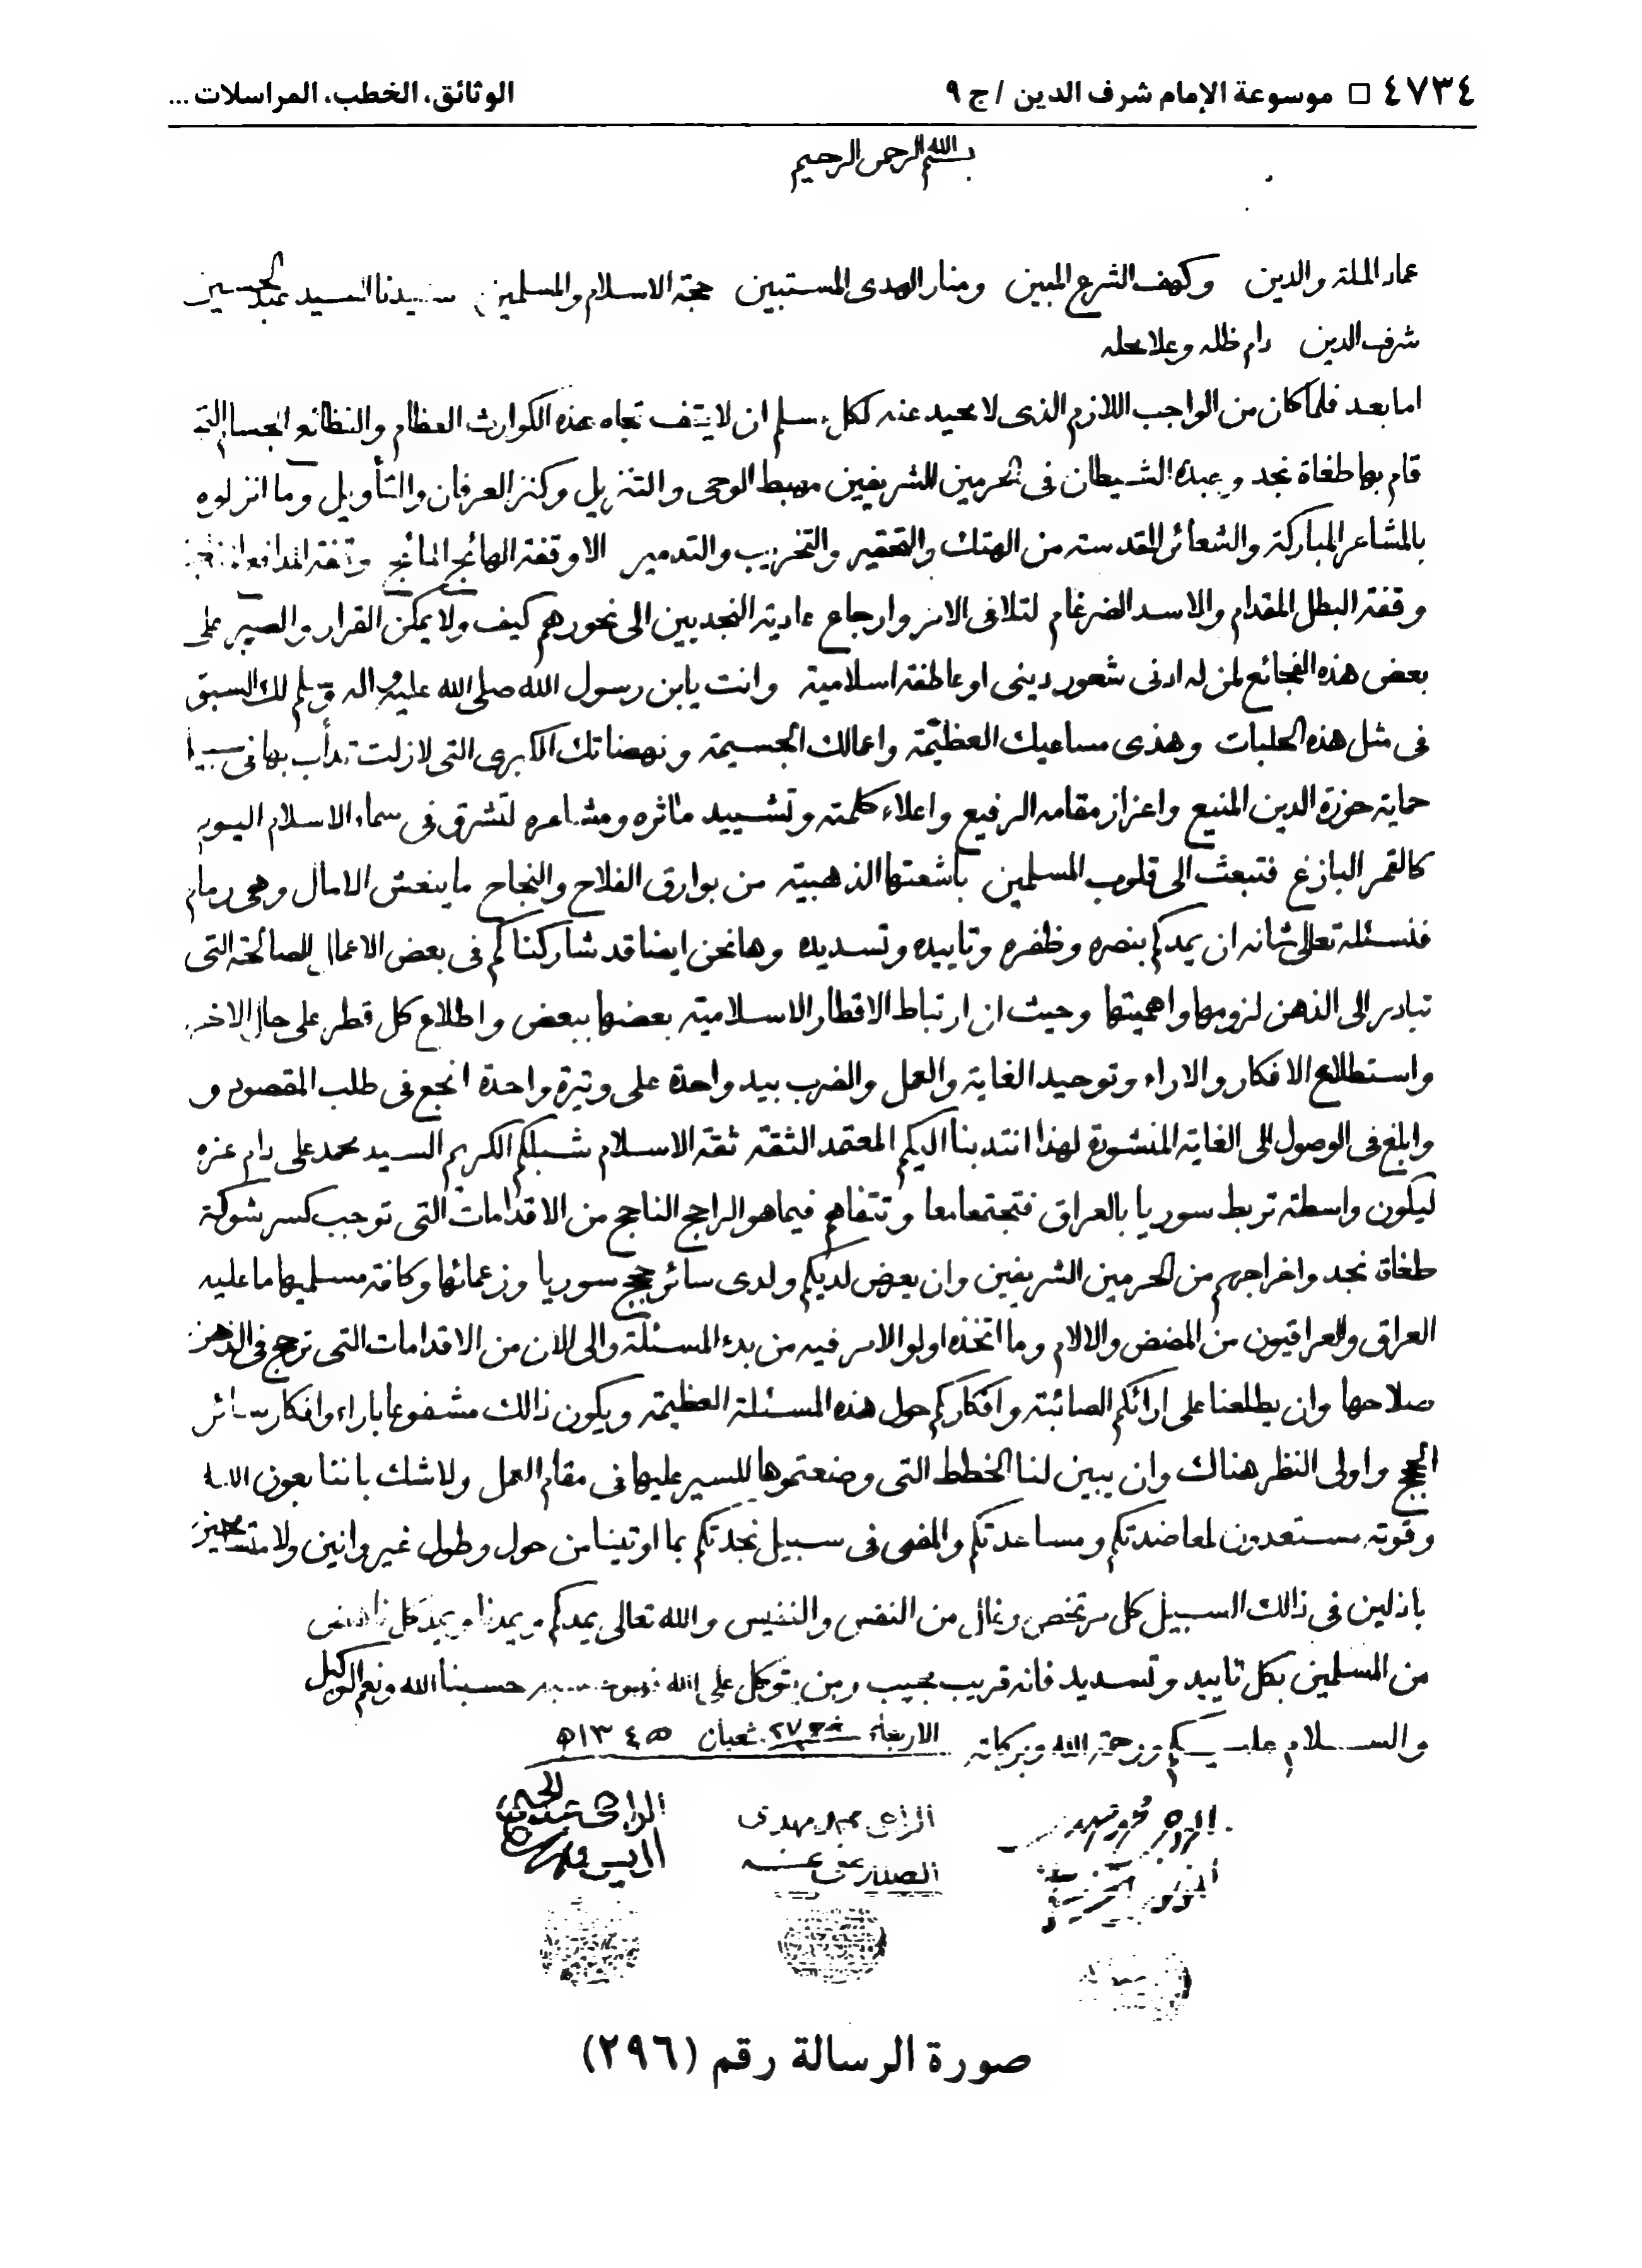 ٤٧٣٤ □ موسوعة الإمام شرف الدين / ج ٩
الوثائق، الخطب، المراسلات ...
بسم الله الرحمن الرحيم
عماد الملة والدين وكهف الشرع المبين ومنار الهدى المستبين حجة الاسلام والمسلمين سيدنا السيد عبد الحسين
شرف الدين دام ظله وعلا محله
اما بعد فلما كان من الواجب اللازم الذى لا محيد عنه لكل مسلم ان لا يقف تجاه هذه الكوارث العظام والفظائع الجسام التى
قام بها طغاة نجد وعبدة الشيطان فى الحرمين الشريفين مهبط الوحى والتنزيل وكنز العرفان والتأويل وما انزلوه
بالمشاعر المباركة والشعائر المقدسة من الهتك والتحقير والتخريب والتدمير الا وقفة الهائج المائج وقفة المدافع
وقفة البطل المقدام والاسد الضرغام لتلافى الامر وارجاع عادية النجديين الى نحورهم كيف ولا يمكن القرار والصبر على
بعض هذه الفجائع لمن له ادنى شعور دينى او عاطفة اسلامية وانت يابن رسول الله صلى الله عليه واله وسلم لك السبق
فى مثل هذه الحلبات وهذى مساعيك العظيمة واعمالك الجسيمة ونهضاتك الكبرى التى لازلت تدأب بها فى سبيل
حماية حوزة الدين المنيع واعزاز مقامه الرفيع واعلاء كلمته وتشييد مآثره ومشاعره لتشرق فى سماء الاسلام اليوم
كالقمر البازغ فتبعث الى قلوب المسلمين باشعتها الذهبية من بوارق الفلاح والنجاح ما ينعش الامال وهى رمام
فنسئله تعالى شانه ان يمدكم بنصره وظفره وتاييده وتسديده وها نحن ايضا قد شاركناكم فى بعض الاعمال الصالحة التى
تبادر الى الذهن لزومها واهميتها وحيث ان ارتباط الاقطار الاسلامية بعضها ببعض واطلاع كل قطر على حال الاخر
واستطلاع الافكار والاراء وتوحيد الغاية والعمل والضرب بيد واحدة على وتيرة واحدة انجع فى طلب المقصود و
وابلغ فى الوصول الى الغاية المنشودة لهذا انتدبنا اليكم المعتمد الثقة ثقة الاسلام شبلكم الكريم السيد محمد على دام عزه
ليكون واسطة تربط سوريا بالعراق فتجتمعا معا وتتفاهم فيما هو الراجح الناجح من الاقدامات التى توجب كسر شوكة
طغاة نجد واخراجهم من الحرمين الشريفين وان يعرض لديكم ولدى سائر حجج سوريا وزعمائها وكافة مسلميها ما عليه
العراق والعراقيون من المضض والالام وما اتخذه اولو الامر فيه من بدء المسئلة والى الان من الاقدامات التى ترجح فى الذهن
صلاحها وان يطلعنا على ارائكم الصائبة وافكاركم حول هذه المسئلة العظيمة ويكون ذالك مشفوعا باراء وافكار سائر
الحجج واولى النظر هناك وان يبين لنا الخطط التى وضعتموها للسير عليها فى مقام العمل ولا شك باننا بعون الله
وقوته مستعدون لمعاضدتكم ومساعدتكم والمضى فى سبيل نجدتكم بما اوتينا من حول وطول غير وانين ولا
باذلين فى ذالك السبيل كل مرتخص وغال من النفس والنفيس والله تعالى يمدكم ويمدنا ويمد كل ناهض
من المسلمين بكل تاييد وتسديد فانه قريب مجيب ومن يتوكل على الله فهو حسبه حسبنا الله ونعم الوكيل
والسلام عليكم ورحمة الله وبركاته الاربعاء ٢٧ شعبان ١٣٤٥ه
الراجى محمد مهدى
الصدر عفى عنه
صورة الرسالة رقم (٢٩٦)